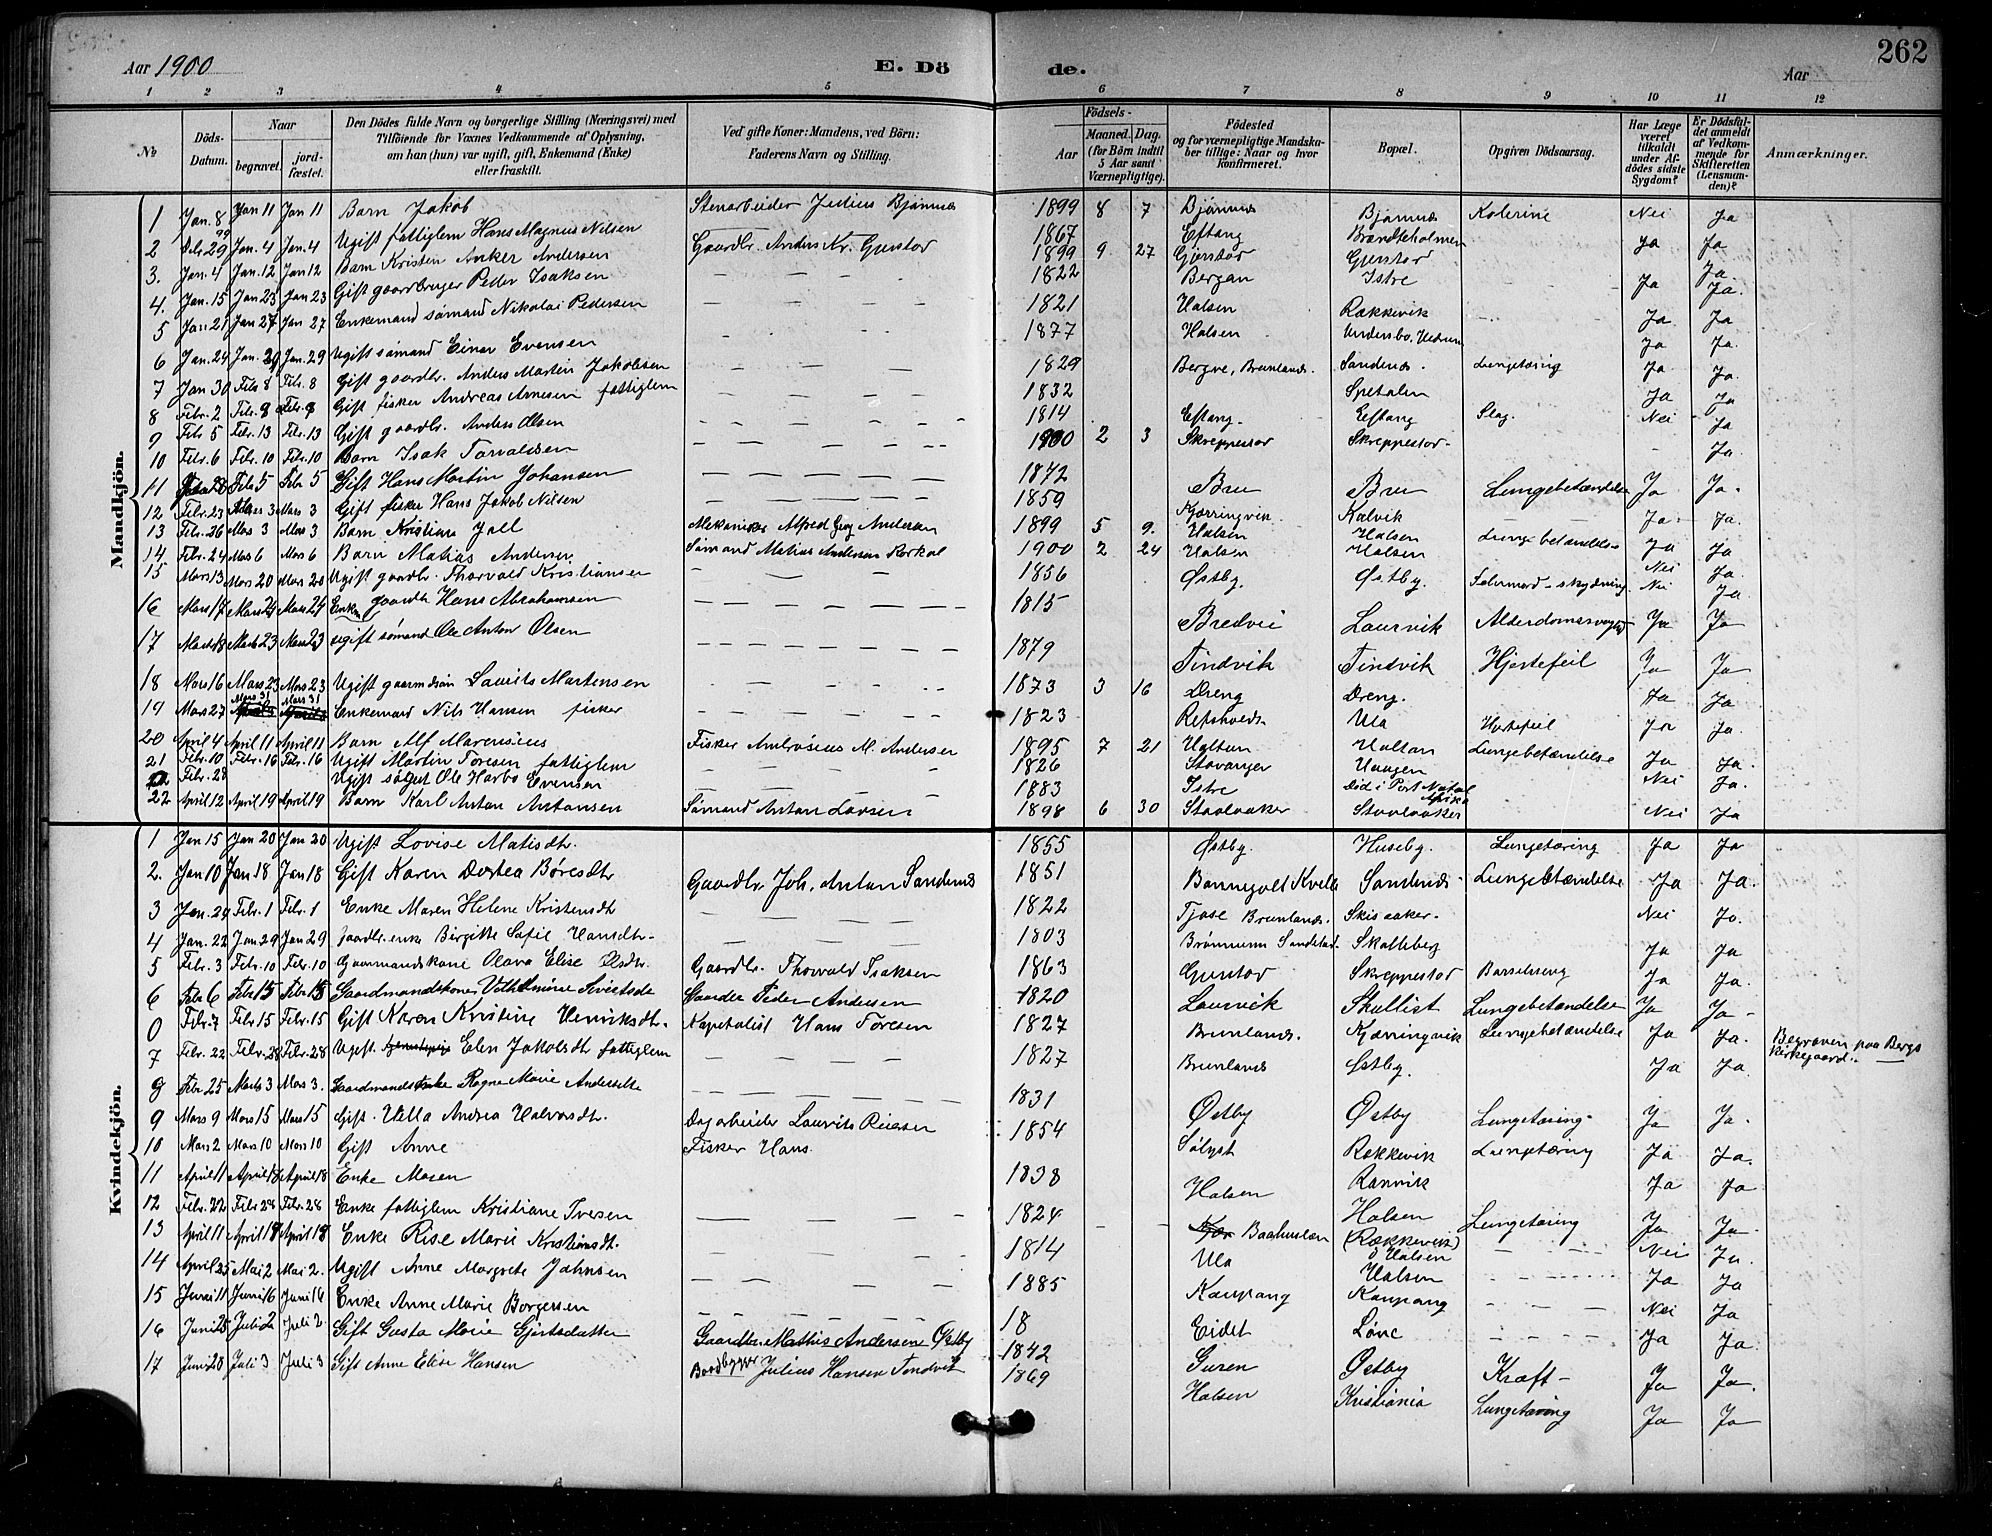 262
Aar 1900
E. Dö
de.
Aar
1 2 3 4 5 6 7 8 9 10 11 12
№
Döds-Datum.
Naar
begravet
jord-fæstet.
Den Dödes fulde Navn og borgerlige Stilling (Næringsvei) med
Tilföiende for Voxnes Vedkommende af Oplysning,
om han (hun) var ugift, gift, Enkemand (Enke)
eller fraskilt.
Ved gifte Koner: Mandens, ved Börn:
Faderens Navn og Stilling.
Födsels-
Aar
Maaned. Dag.
(for Börn indtil
5 Aar samt
Værnepligtige).
Födested
og for værnepligtige Mandska-
ber tillige: Naar og hvor
konfirmeret.
Bopæl.
Opgiven Dödsaarsag.
Har Læge
været
tilkaldt
under Af-
dödes sidste
Sygdom?
Er Dödsfal-
det anmeldt
af Vedkom-
mende for
Skifteretten
(Lensman-
den)?
Anmærkninger.
Mandkjön.
1 Jan. 8 Jan 11 Jan 11 Barn Jakob Stenarbeider Julius Bjønnes 1899 8 7 Bjønnes Bjønnes Kolerine Nei Ja
2 99 Dcbr 29 Jan. 4 Jan. 4 Ugift fattiglem Hans Magnus Nilsen 1867 Eftang Brandtholmen Ja Ja
3. Jan. 4 Jan. 12 Jan 12 Barn Kristen Anker Andersen Gaardbr. Anders Kr. Gjerstad 1899 9 27 Ja
4. Jan. 15 Jan 23 Jan 23 Gift gaardbruger Peder Isaksen 1822 Bergan Istre Ja Ja.
5 Jan 21 Jan 27 Jan 27 Enkemand sømand Nikolai Pedersen 1821 Halsen Rækkevik Ja Ja
6 Jan. 24 Jan. 29 Jan. 29 Ugift sømand Einar Evensen 1877 Halsen Ja Ja.
7 Jan 30 Febr 8 Febr. 8 Gift gaardbr. Anders Martin Jakobsen 1829 Brunlanes. Sandenes. Lungetæring Ja Ja.
8 Febr. 2 Febr. 8 Febr. 8 Gift fisker Andreas Arnesen fattiglem 1832 Spetalen Ja Ja
9 Febr 5 Febr. 13 Febr. 13 Gift gaardbr. Anders Olsen 1814 Eftang. Eftang Slag. Nei Ja
10 Febr. 6 Febr. 10 Febr. 10 Barn Isak Torvaldsen 1900 2 3 Skreppestad Skreppestad Ja.
11 Febr 5 Febr 5 Gift Hans Martin Johansen 1872 Bru Bru Lungebetændelse Ja Ja.
12 Febr. 23 Mars 3 Mars 3 Gift fisker Hans Jakob Nilsen 1859 Kjærringvik. Kalvik Ja. Ja.
13 Febr. 26 Mars 3 Mars 3 Barn Kristian Joll Mekaniker Alfred Georg Andersen 1899 5 9. Halsen Halsen Lungebetændelse Ja Ja
14 Febr. 24 Mars 6 Mars 6 Barn Matias Andersen Sømand Matias Andersen 1900 2 24 Halsen Halsen Nei Ja.
15 Mars 13 Mars 20 Mars 20 Ugift gaardbr. Thorvald Kristiansen 1856 Østby. Østby. Selvmord - skydning Nei Ja
16 Mars 17 Mars 24 Mars 24 Enkem. gaardbr Hans Abrahamsen 1815 Bredvei Laurvik Ja Ja
17 Mars 18 Mars 23 Mars 23 ugift sømand Ole Anton Olsen 1879 Tindvik Tindvik Hjertefeil Ja Ja
18 Mars 16 Mars 23 Mars 23 Ugift gaardmdsøn Laurits Martensen 1873 3 16 Dreng Dreng. Ja Ja
19 Mars 27 Mars 31 Mars 31 Enkemand Nils Hansen fisker 1823 Refsholdt. Ula Hjertefeil Ja Ja.
20 April 4 April 11 April 11 Barn Alf Marensius Fisker Ambrosius M. Andersen 1895 7 21 Haltan Haltan Lungebetændelse Ja Ja.
21 Febr. 10 Febr. 16 Febr. 16 Ugift Martin Toresen fattiglem 1826 Stavanger Haugen Nei Ja.
0 Febr. 28 Ugift søgut Ole Harbo Evensen 1883 Istre Død i Port Natal Afrika
22 April 12 April 19 April 19 Barn Karl Anton Antonsen Sømand Anton Larsen 1898 6 30 Staalaaker Staalaaker Nei Ja
Kvindekjön.
1 Jan 15 Jan 20 Jan 20 Ugift Lovise Matisdtr. 1855 Østby. Huseby. Lungetæring Ja Ja
2. Jan 10 Jan 18 Jan 18 Gift Karen Dortea Børesdtr Gaardbr. Joh. Anton Sandenes 1851 Kvelle Sandenes Lungebetændelse Ja Ja.
3 Jan. 24 Febr. 1 Febr. 1 Enke Maren Helene Kristensdtr 1822 Tjøse Brunlanes. Skisaaker. Nei Ja.
4 Jan. 22 Jan 29 Jan 29 Gaardbr. enke Birgitte Sofie Hansdtr. 1803 Brønnum Sandstad. Skalleberg Ja Ja
5 Febr. 3 Febr. 10 Febr. 10 Gaarmandskone Olava Elise Olsdtr. Gaardbr. Thorvald Isaksen 1863 Gjerstad Skreppestad Barselseng Ja Ja.
6 Febr 6 Febr 15 Febr 15 Gaardmandskone Vilhelmine Sivertsdtr Gaardbr Peder Andersen 1820 Laurvik Skallist Lungebetændelse Ja Ja
0 Febr. 7 Febr. 15 Febr. 15 Gift Karen Kristine Henriksdtr. Kapitalist Hans Toresen 1827 Brunlanes. Kjærringvik Lungebetændelse Ja Ja. Begraven paa Bergs Kirkegaard.
7 Febr. 22 Febr. 28 Febr. 28 Ugift. Elen Jakobsdtr fattiglem 1827 Brunlanes Østby. Ja Ja.
8 Febr. 25 Marts 3 Mars 3. Gaardmandsenke Ragne Marie Andersdtr 1831 Østby Østby Lungetæring Ja Ja.
9 Mars 9 Mars 15 Mars 15 Gift. Hella Andrea Halvorsdtr. Dagarbeider Laurits Riersen 1854 Sølyst Rækkevik Lungetæring Ja Ja.
10 Mars 2 Mars 10 Mars 10 Gift Anne Fisker Hans 1838 Halsen Ranvik Ja Ja
11 April 11 April 18 April 18 Enke Maren
12 Febr. 22 Febr 28 Febr. 28 Enke fattiglem Kristiane Iversen 1824 Baahuslæn Halsen (Rækkevik) Lungetæring Ja Ja
13 April 11 April 18 April 18 Enke Rise Marie Kristiansdtr. 1814 Ula Halsen Nei Ja.
14 April 25 Mai 2 Mai 2. Ugift Anne Margrete Johnsen 1885 Kaupang Halsen Kaupang Ja Ja
15 Juni 11 Juni 16 Juni 16 Enke Anne Marie Borgersen 18 Eidet Løve Nei Ja
16 Juni 25 Juli 2 Juli 2. Gift Gusta Marie Ejertsdatter Gaardbr. Mathis Andersen Østby 1842 Guren Østby Kræft Ja Ja.
17 Juni 28 Juli 3 Juli 3 Gift Anne Elise Hansen Baadbygger Julius Hansen Tindvik 1869 Halsen Kristiania Lungetæring Ja Ja